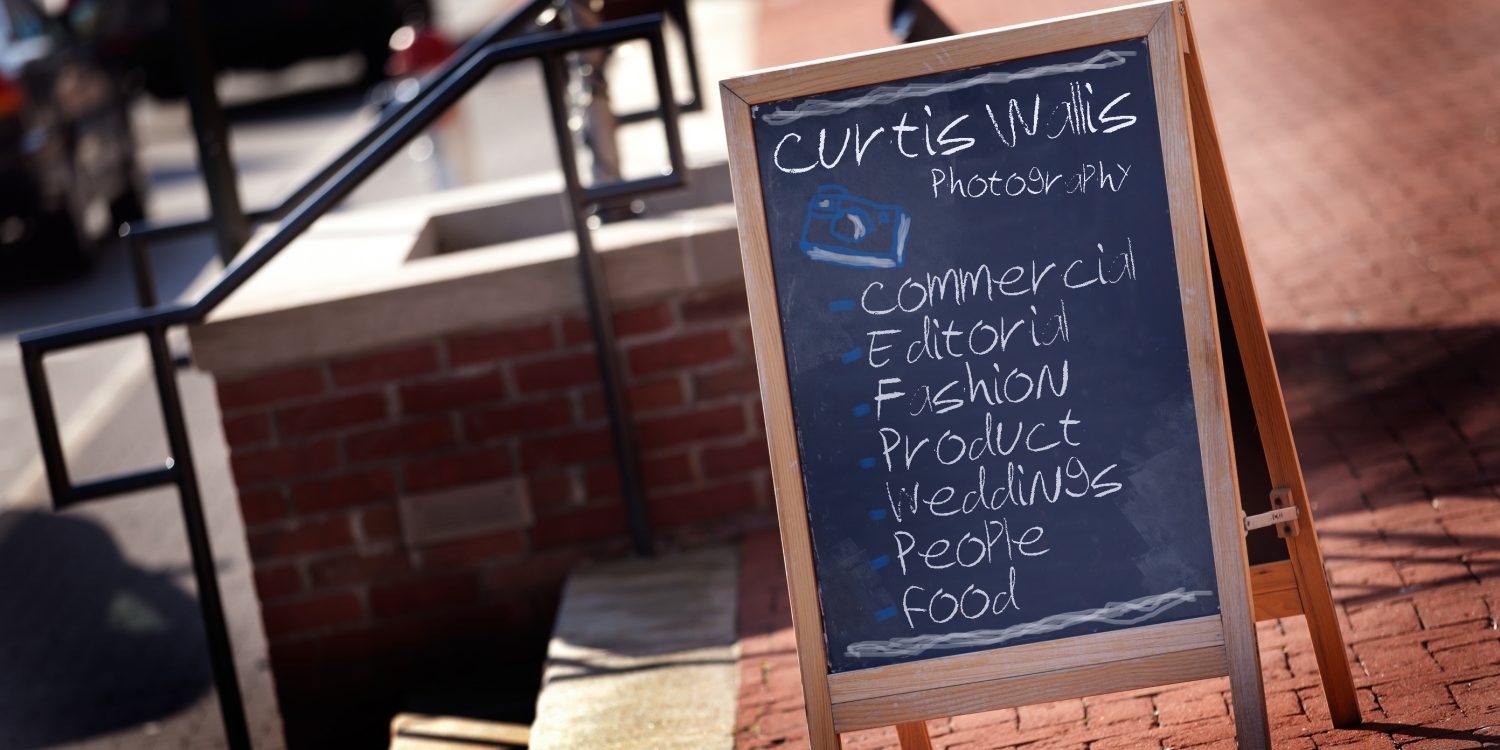 Curtis Wallis
Photography
Commercial
Editorial
Fashion
Product
Weddings
People
Food